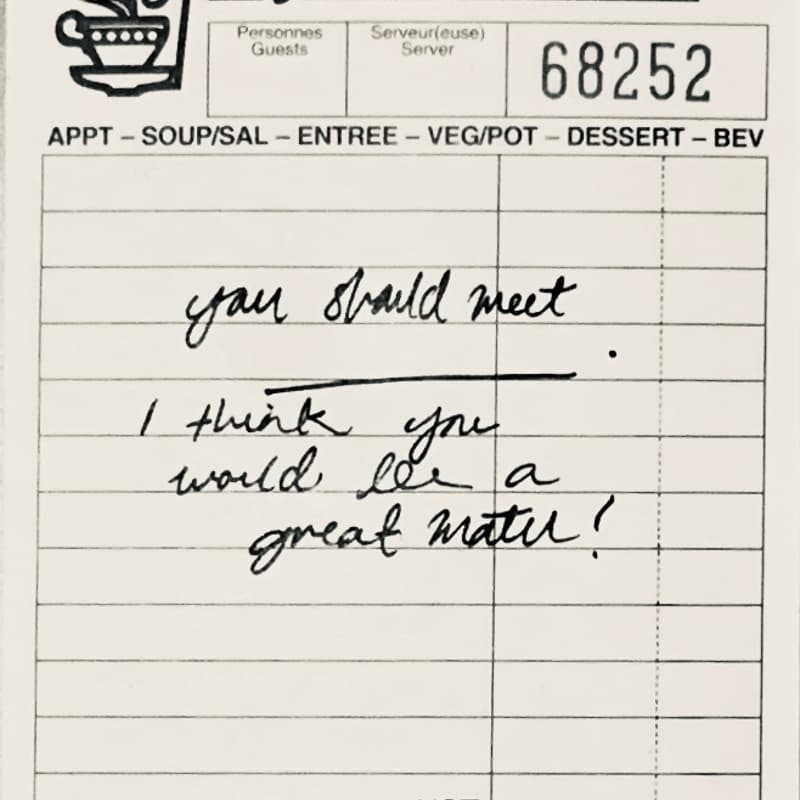 Personnes
Guests
Serveur(euse)
Server
68252
APPT – SOUP/SAL – ENTREE – VEG/POT – DESSERT – BEV
you should meet
.
I think you
would be a
great match!